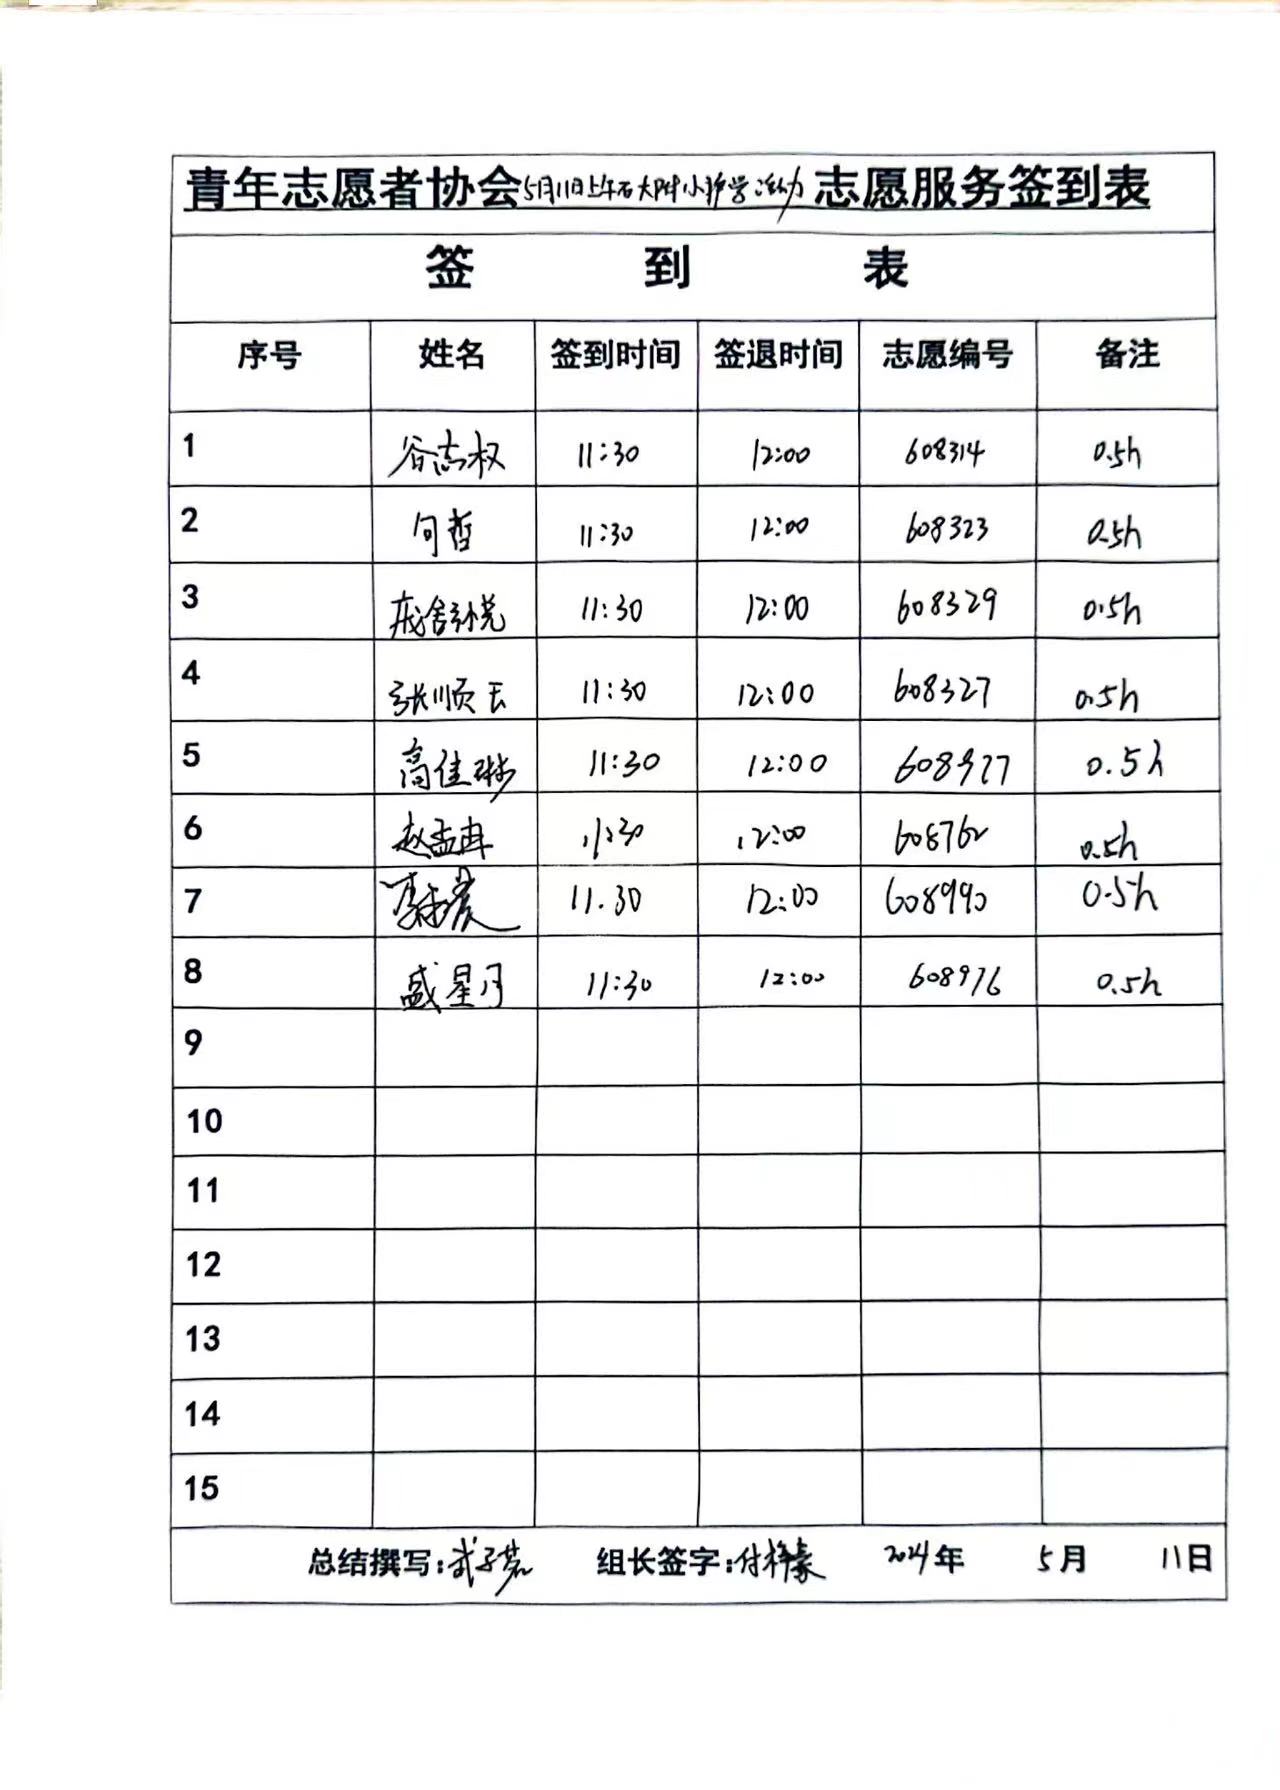 青年志愿者协会5月11日上午石大附小护学活动志愿服务签到表
签 到 表
序号 姓名 签到时间 签退时间 志愿编号 备注
1 谷志权 11:30 12:00 608314 0.5h
2 向哲 11:30 12:00 608323 0.5h
3 庞舒悦 11:30 12:00 608329 0.5h
4 张顺天 11:30 12:00 608327 0.5h
5 高佳琳 11:30 12:00 608977 0.5h
6 赵孟冉 11:30 12:00 608762 0.5h
7 11.30 12:00 608990 0.5h
8 盛星月 11:30 12:00 608976 0.5h
9
10
11
12
13
14
15
总结撰写:武子茗 组长签字:付梓豪 2024年 5月 11日